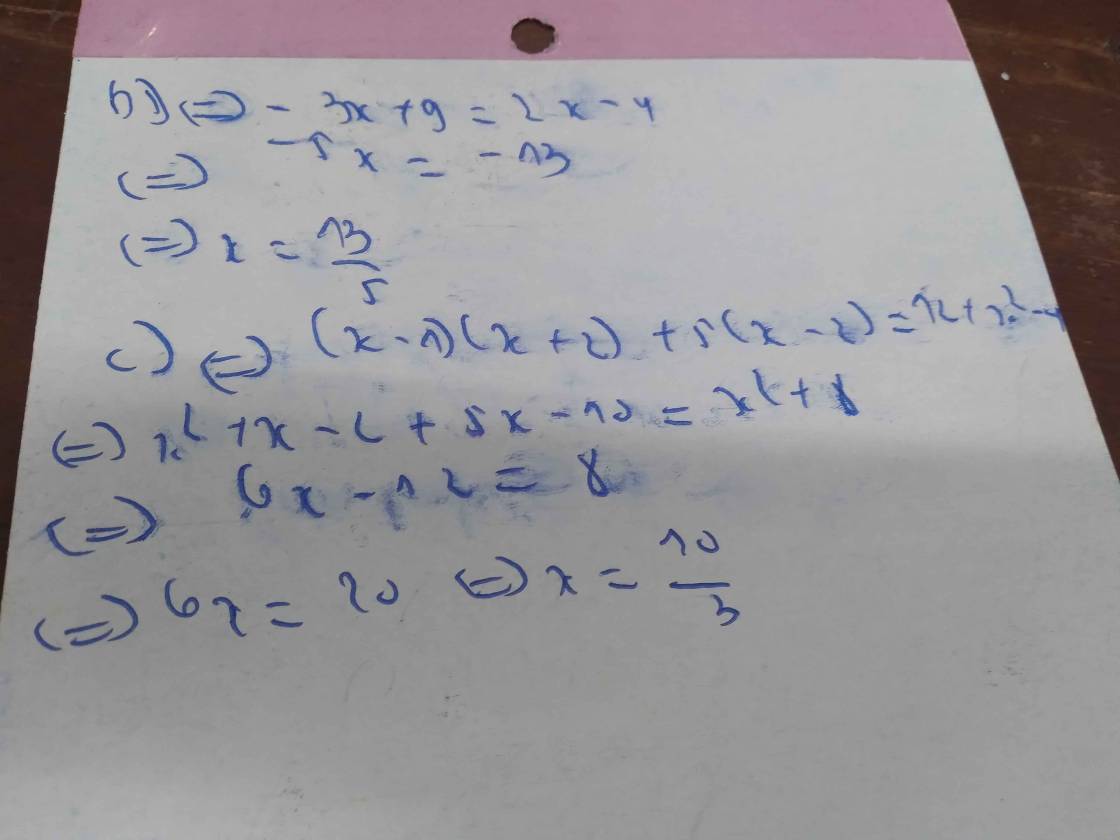 b) (=) - 3x + 9 = 2x - 4
(=) -5x = -13
(=) x = 13/5
c) (=) (x - 1)(x + 2) + 5(x - 2) = 12 + x² - 4
(=) x² + x - 2 + 5x - 10 = x² + 8
(=) 6x - 12 = 8
(=) 6x = 20 (=) x = 10/3